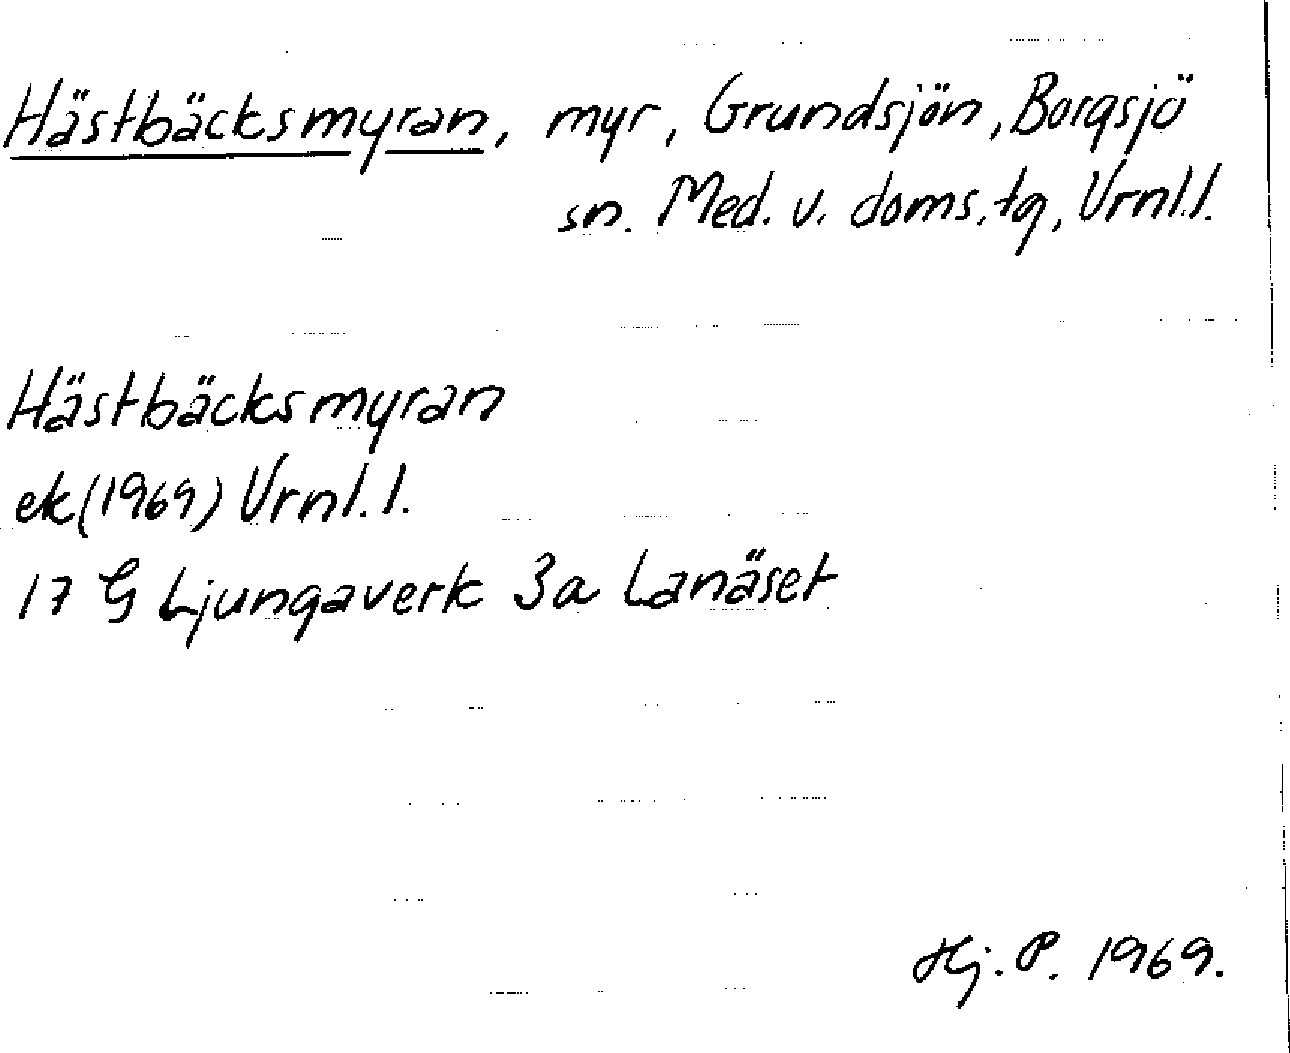 Hästbäcksmyran, myr, Grundsjön, Borgsjö
sn. Med. v. doms.tg, Vrnl.l.
Hästbäcksmyran
ek (1969) Vrnl.l.
17 G Ljungaverk 3a Lanäset
Hj. P. 1969.